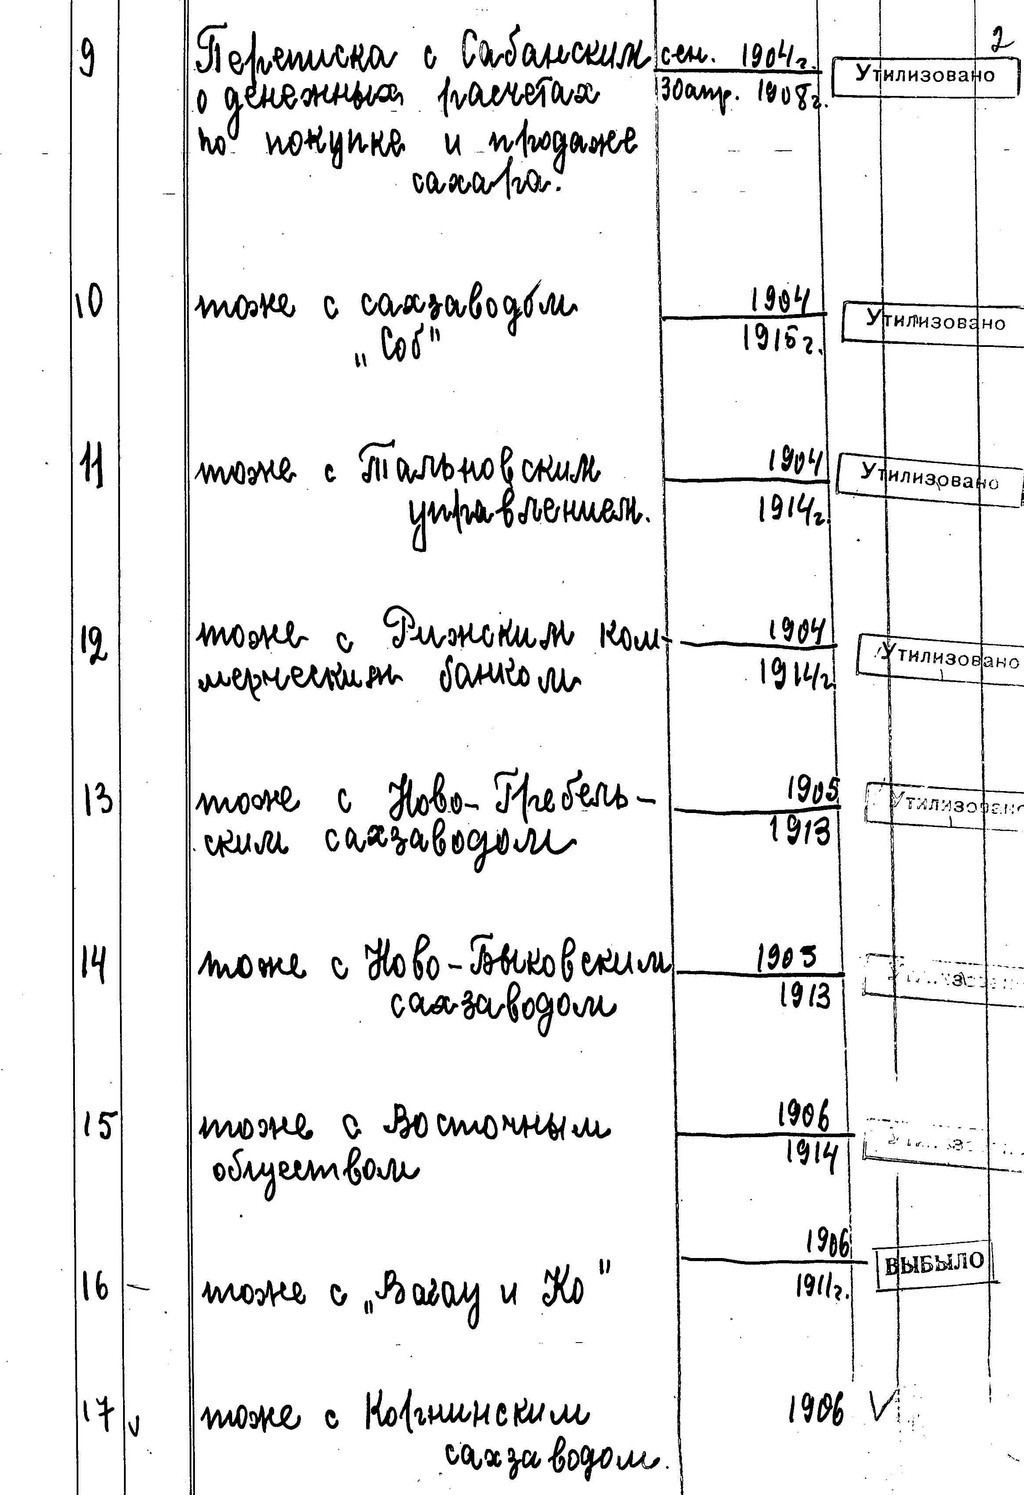 2
9 Переписка с Сабанским сен. 1904г. Утилизовано
о денежных расчетах 30 апр. 1908г.
по покупке и продаже
сахара.
10 тоже с сахзаводом 1904 Утилизовано
„Соб" 1916г.
11 тоже с Тальновским 1904 Утилизовано
управлением. 1914г.
12 тоже с Рижским ком- 1904 Утилизовано
мерческим банком 1914г
13 тоже с Ново-Гребель- 1905 Утилизовано
ским сахзаводом 1913
14 тоже с Ново-Быковским 1905 Утилизовано
сахзаводом 1913
15 тоже с Восточным 1906
обществом 1914
1906 ВЫБЫЛО
16 — тоже с „Вагау и Ко" 1911г.
17 v тоже с Коргнинским 1906 V
сахзаводом.